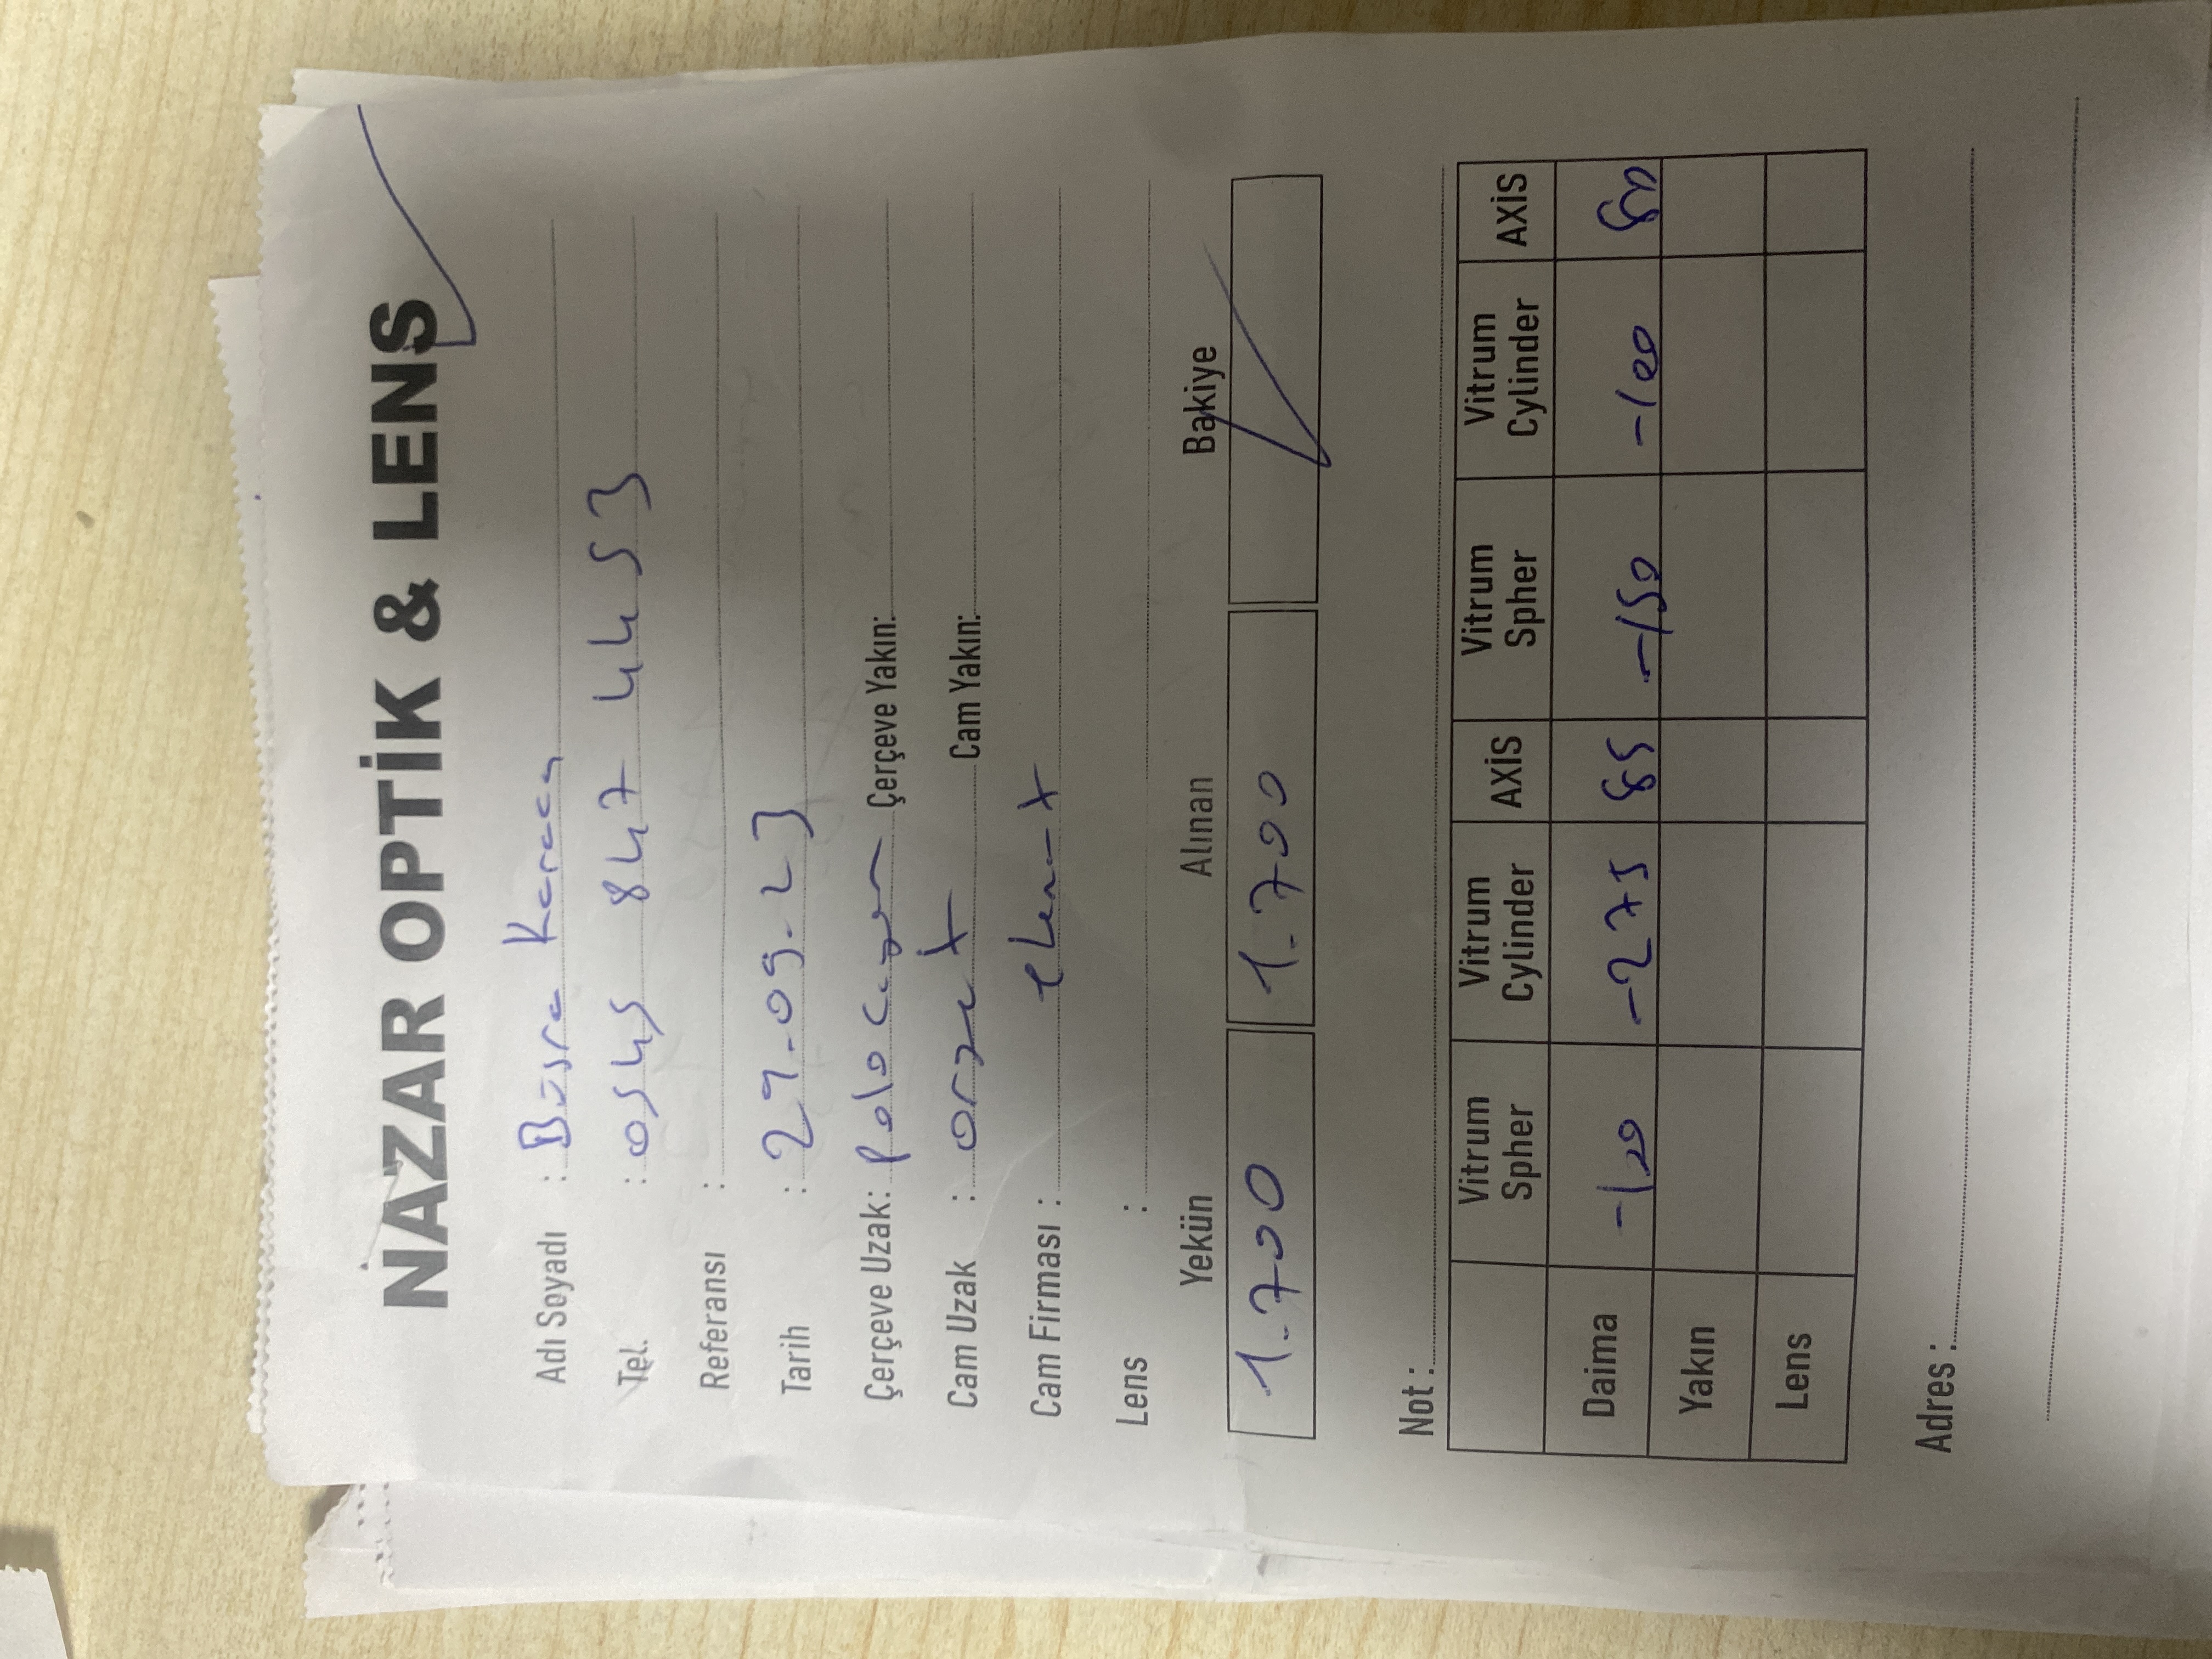 NAZAR OPTİK & LENS
Adı Soyadı : Büşra Karaca
Tel. : 0545 847 44 53
Referansı :
Tarih : 29.09.23
Çerçeve Uzak: polo Çerçeve Yakın:
Cam Uzak : Cam Yakın:
Cam Firması :
Lens :
Yekün Alınan Bakiye
1.700 1.700
Not :
Vitrum Spher Vitrum Cylinder AXİS Vitrum Spher Vitrum Cylinder AXİS
Daima -100 -275 85 -150 -100 80
Yakın
Lens
Adres :